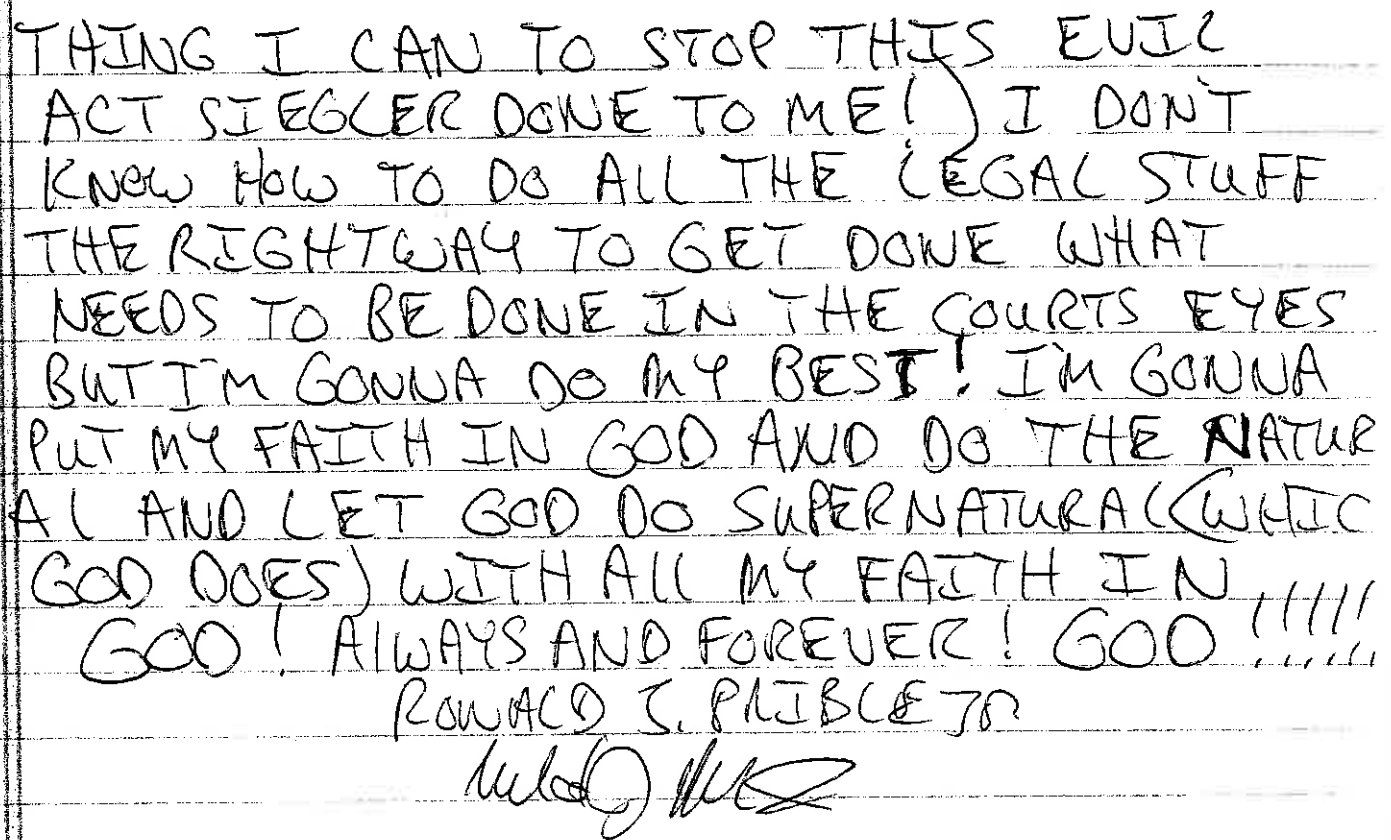 THING I CAN TO STOP THIS EVIL
ACT SIEGLER DONE TO ME!) I DON'T
KNOW HOW TO DO ALL THE LEGAL STUFF
THE RIGHT WAY TO GET DONE WHAT
NEEDS TO BE DONE IN THE COURTS EYES
BUT I'M GONNA DO MY BEST! I'M GONNA
PUT MY FAITH IN GOD AND DO THE NATUR
AL AND LET GOD DO SUPERNATURAL (WHIC
GOD DOES) WITH ALL MY FAITH IN
GOD! ALWAYS AND FOREVER! GOD !!!!!!
RONALD J. PRIBLE JR